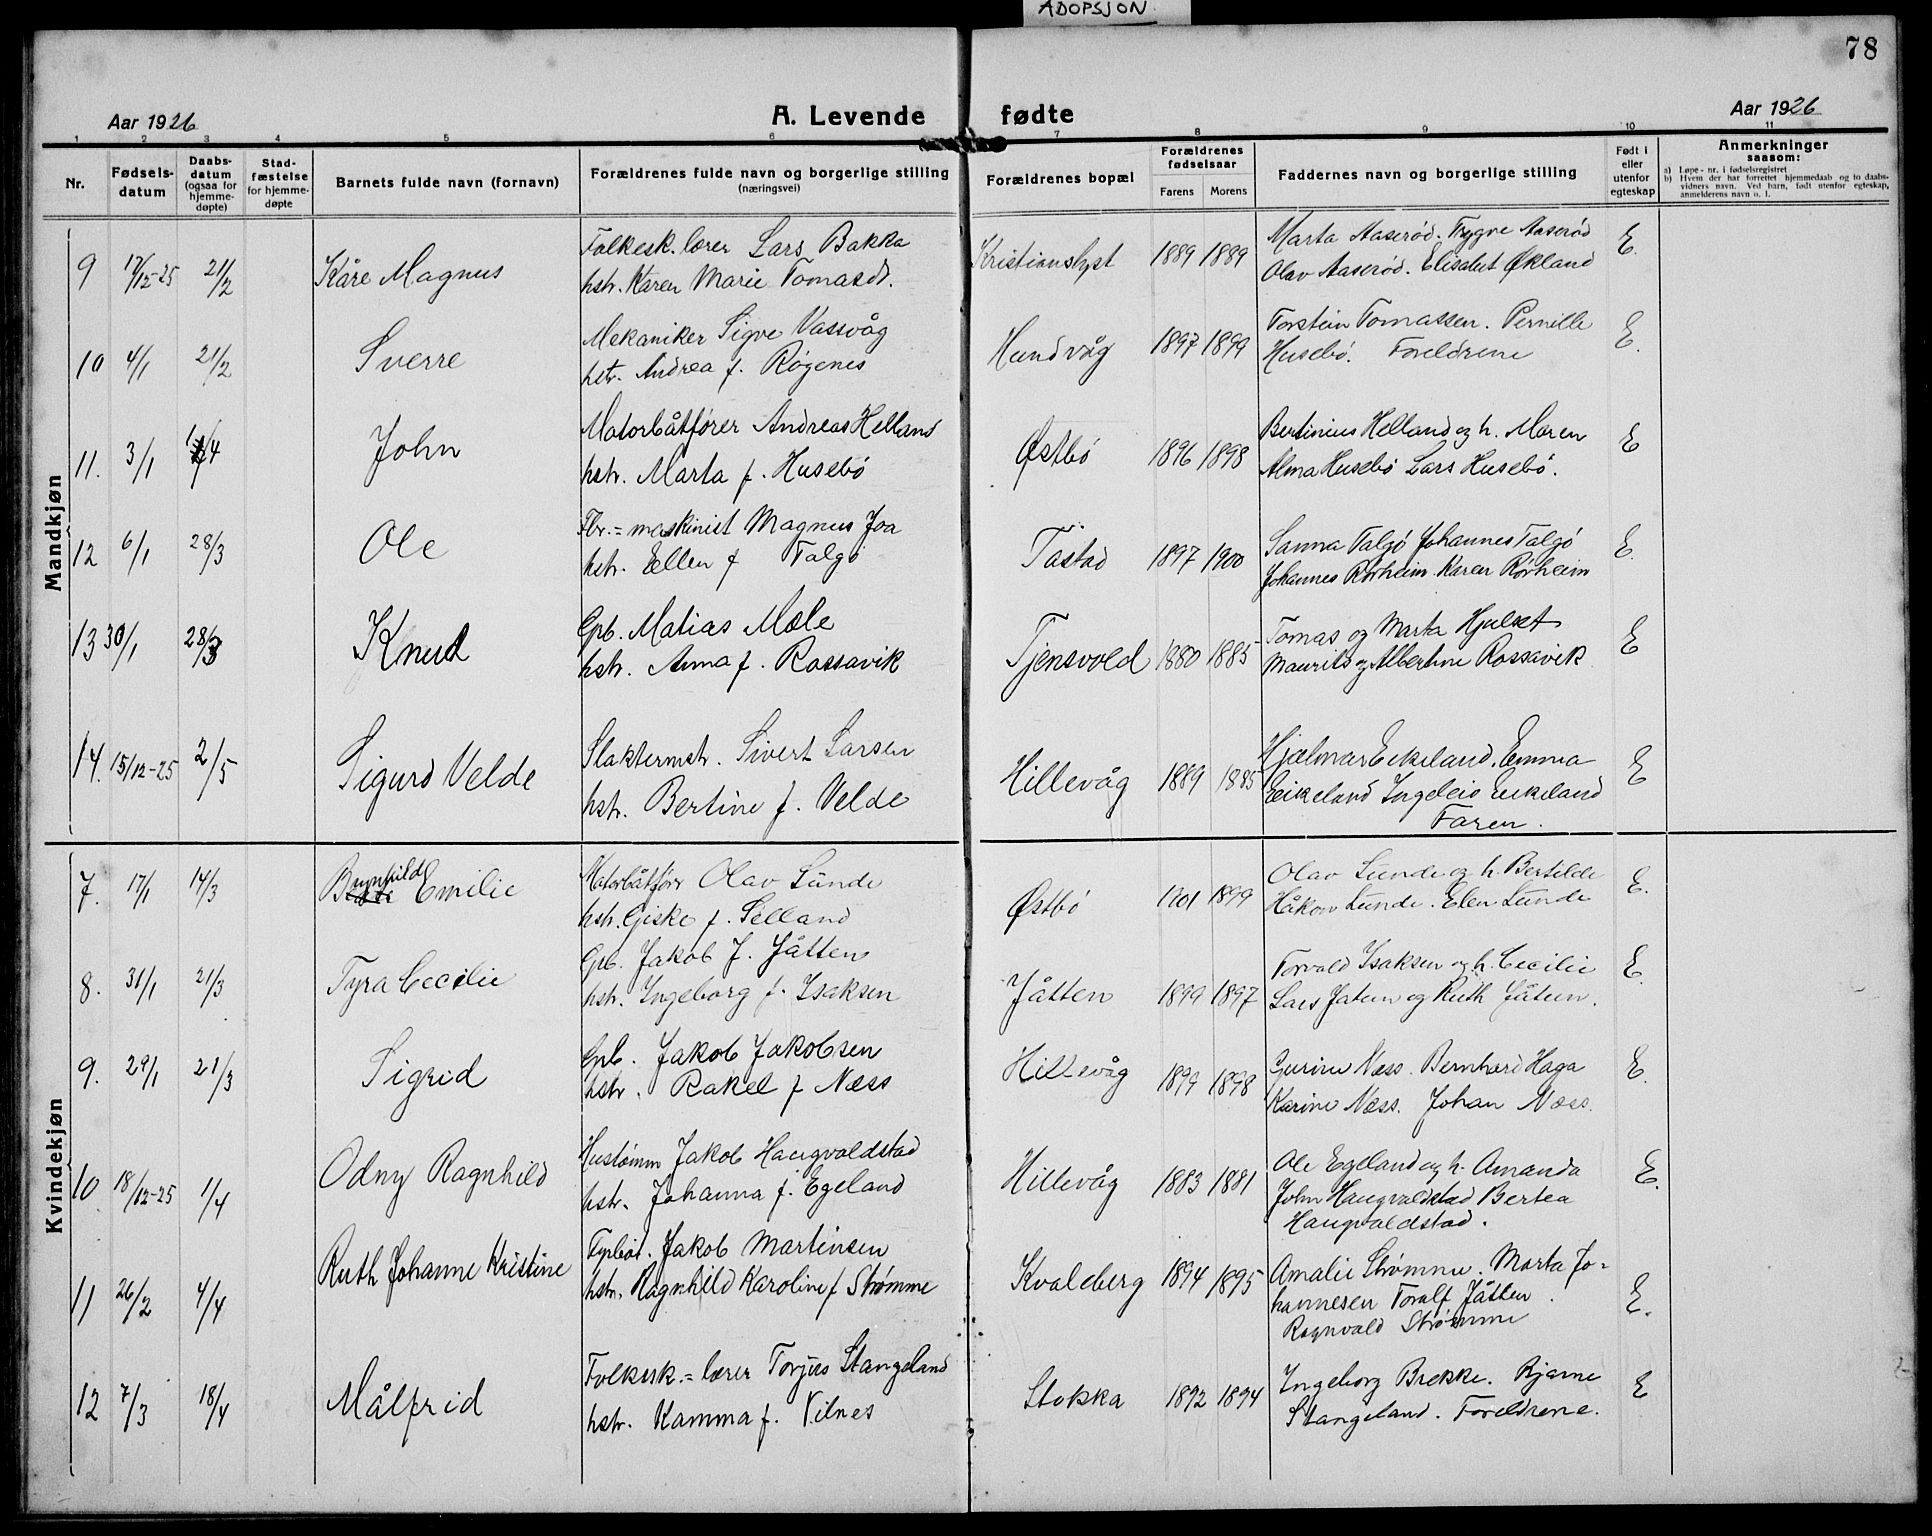 ADOPSJON
78
Aar 1926
A. Levende fødte
Aar 1926
1 2 3 4 5 6 7 8 9 10 11
Nr.
Fødsels-
datum
Daabs-
datum
(ogsaa for
hjemme-
døpte)
Stad-
fæstelse
for hjemme-
døpte
Barnets fulde navn (fornavn)
Forældrenes fulde navn og borgerlige stilling
(næringsvei)
Forældrenes bopæl
Forældrenes
fødselsaar
Farens Morens
Faddernes navn og borgerlige stilling
Født i
eller
utenfor
egteskap
Anmerkninger
saasom:
a) Løpe-nr. i fødselsregistret
b) Hvem der har forrettet hjemmedaab og to daabs-
vidners navn. Ved barn, født utenfor egteskap,
anmelderens navn o. l.
Mandkjøn
9 17/12-25 21/2 Kåre Magnus
Folkesk. lærer Lars Bakka
hstr. Karen Marie Tomasdr.
Kristianslyst 1889 1889
Marta Aaserød. Trygve Aaserød
Olav Aaserød. Elisabet Økland
E.
10 4/1 21/2 Sverre
Mekaniker Sigve Vassvåg
hstr. Andrea f. Røgenes
Hundvåg 1897 1899
Torstein Tomassen. Pernille
Husebø. Foreldrene
E.
11. 3/1 1/4 John
Motorbåtfører Andreas Helland
hstr. Marta f. Husebø
Østbø 1896 1898
Bertinius Helland og h. Maren
Alma Husebø Lars Husebø.
E
12 6/1 28/3 Ole
Fbr.=maskinist Magnus Joa
hstr. Ellen f Talgø
Tastad 1897 1900
Sanna Talgø Johannes Talgø
Johannes Rørheim. Karen Rørheim
E.
13 30/1 28/3 Knud
Gpb. Matias Mæle
hstr. Anna f. Rossavik
Tjensvold 1880 1885
Tomas og Marta Hjelset
Maurits og Albertine Rossavik
E
14. 15/12-25 2/5 Sigurd Velde
Slaktermstr. Sivert Larsen
hstr. Bertine f. Velde
Hillevåg 1889 1885
Hjalmar Eikeland. Emma
Eikeland Ingeleiv Eikeland
Faren.
E
Kvindekjøn
7. 17/1 14/3 Brynhild Emilie
Motorbåtfører Olav Lunde
hstr. Giske f. Selland
Østbø 1901 1899
Olav Lunde og h. Bertilde
Håkon Lunde. Elen Lunde
E.
8. 31/1 21/3 Tyra Cecilie
Gpb. Jakob J. Jåtten
hstr. Ingeborg f. Isaksen
Jåtten 1899 1897
Torvald Isaksen og h. Cecilie
Lars Jåtun og Ruth Jåtun.
E.
9. 29/1 21/3 Sigrid
Gpb. Jakob Jakobsen
hstr. Rakel f Næss
Hillevåg 1899 1898
Gurine Næss. Bernhard Haga
Karine Næss. Johan Næss.
E.
10 18/12-25 1/4 Odny Ragnhild
Hustømm Jakob Haugvaldstad
hstr. Johanna f. Egeland
Hillevåg 1883 1881
Ole Egeland og h. Amanda
John Haugvaldstad Bertea
Haugvaldstad.
E.
11 26/2 4/4 Ruth Johanne Kristine
Jakob Martinsen
hstr. Ragnhild Karoline f Strømme
Kvaleberg 1894 1895
Amalie Strømme. Marta Jo-
hannesen Toralf Jåtten.
Ragnvald Strømme
E.
12 7/3 18/4 Målfrid
Folkesk.=lærer Torjus Stangeland
hstr. Kamma f. Vilnes
Stokka 1892 1894
Ingeborg Brekke. Bjarne
Stangeland. Foreldrene.
E